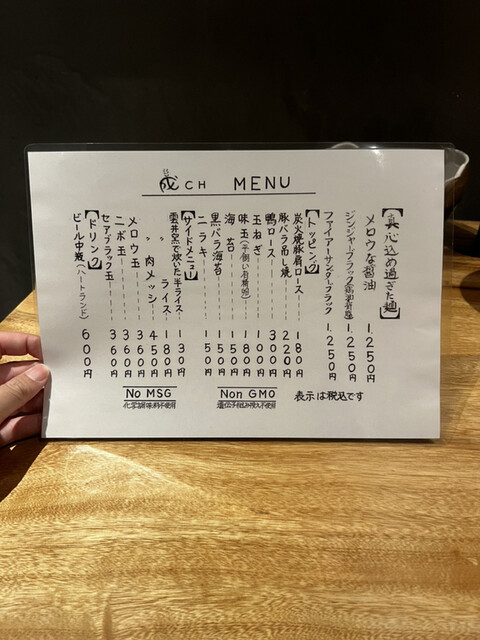 CH MENU
【真心込め過ぎた麺】
メロウな醤油 1.250円
ジンジャーブラック 1.250円
ファイアーサンダーブラック 1.250円
【トッピング】
炭火焼豚肩ロース 180円
豚バラ吊し焼 220円
鴨ロース 300円
玉ねぎ 100円
味玉(平飼い有精卵) 180円
海苔 150円
黒バラ海苔 150円
ニラキ 50円
【サイドメニュー】
雲井窯で炊いた半ライス 130円
〃 ライス 180円
〃 肉メッシ 450円
メロウ玉 360円
ニボ玉 360円
セアブラック玉 360円
【ドリンク】
ビール中瓶(ハートランド) 600円
No MSG
化学調味料不使用
Non GMO
遺伝子組み換え不使用
表示は税込です